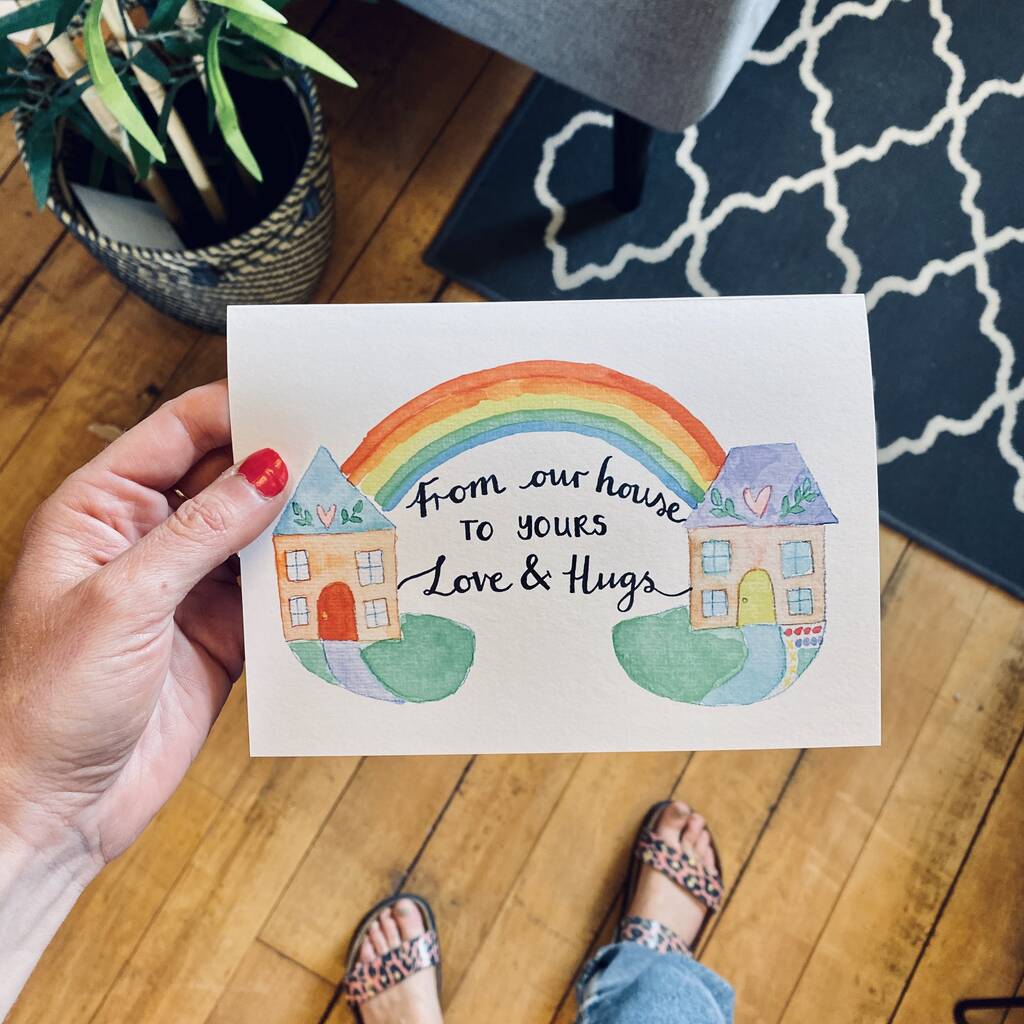 From our house
TO YOURS
Love & Hugs